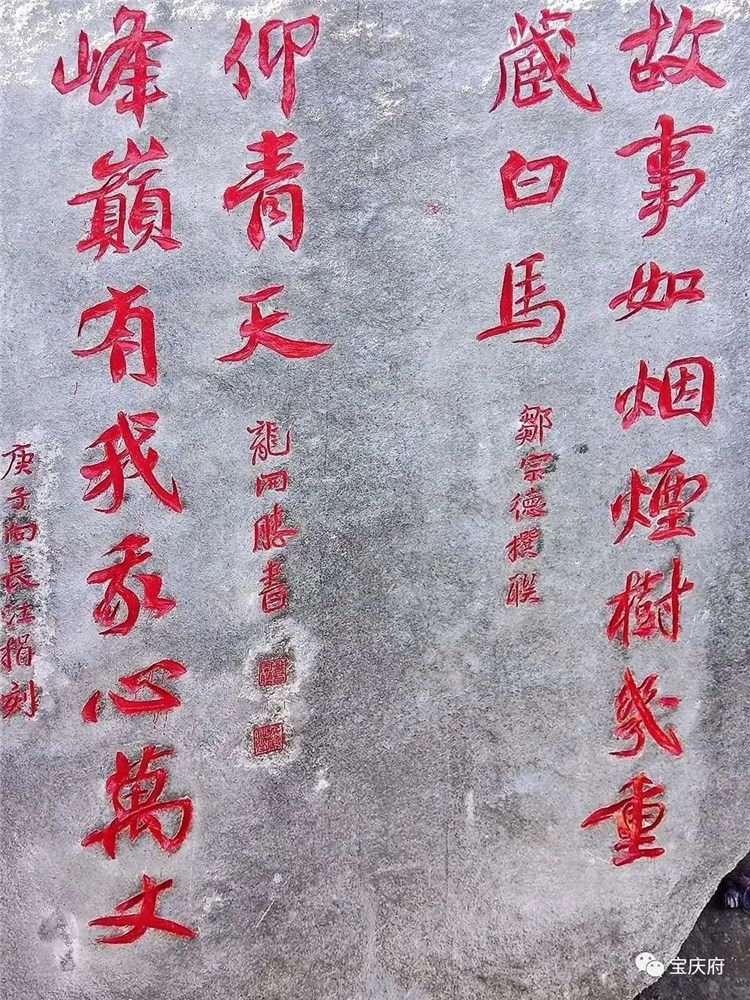 故事如烟煙樹幾重
藏白馬
鄒宗德撰联
峰巔有我我心萬丈
仰青天
龍開勝書
庚子向長江捐刻
宝庆府